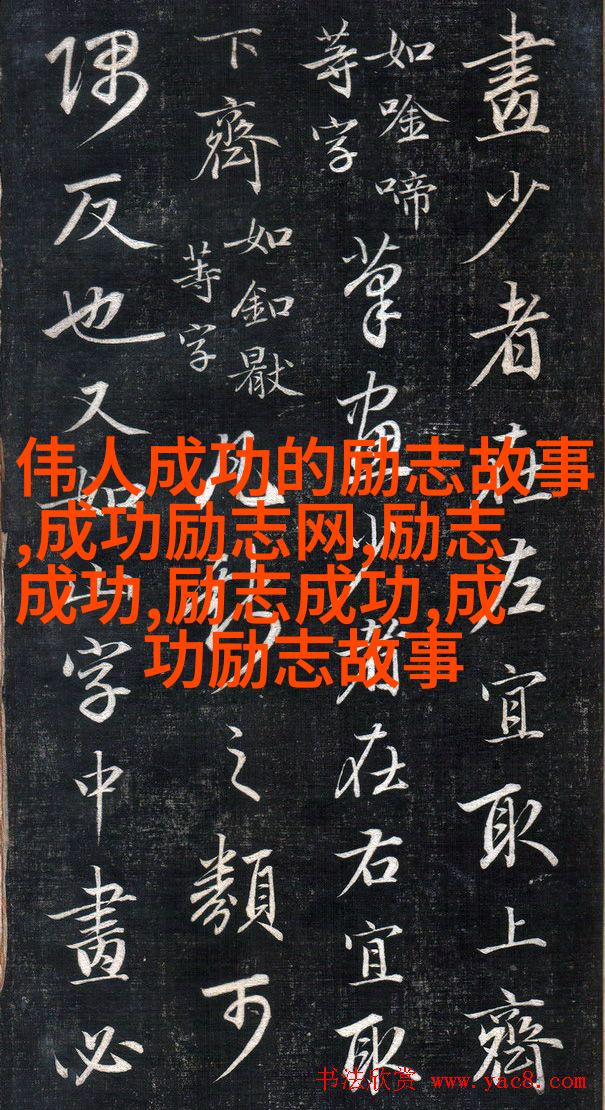 畫少者在左宜取上齊
如唫啼
等字
筆畫少者在右宜取
下齊
如釦
等字
凡之類可
隅反也又如山字中畫必
伟人成功的励志故事
,成功励志网,励志
成功,励志成功,成
功励志故事
书法欣赏 www.yac8.com